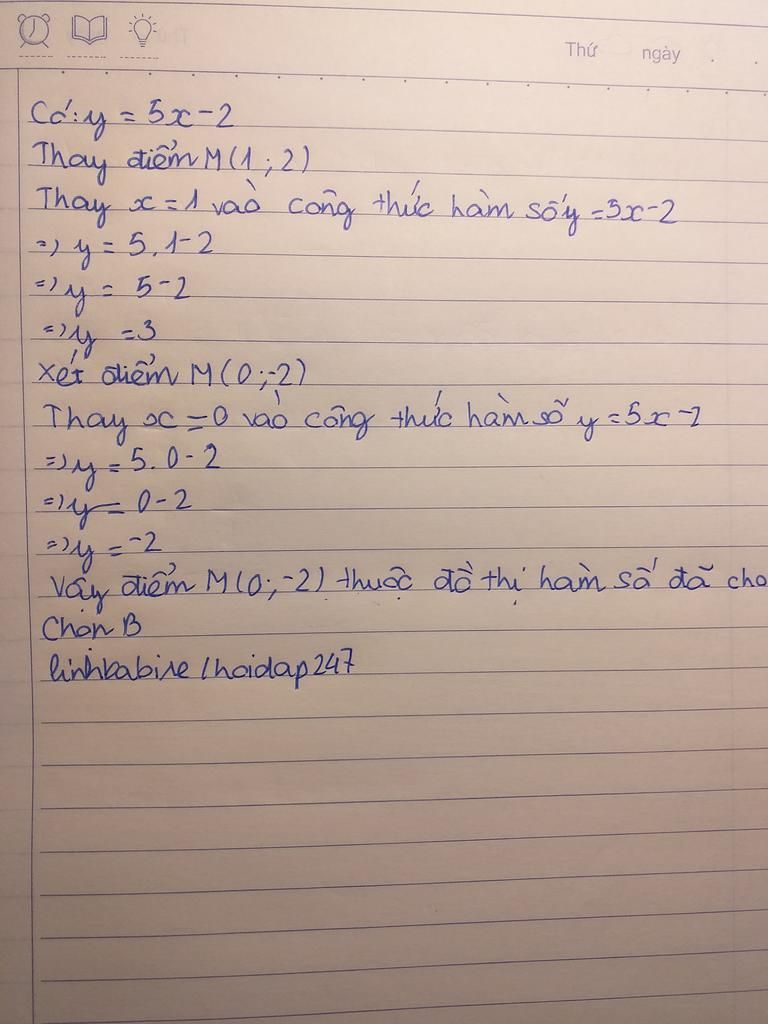 Thứ ngày . .
Có: y = 5x - 2
Thay điểm M(1; 2)
Thay x = 1 vào công thức hàm số y = 5x - 2
=> y = 5.1 - 2
=> y = 5 - 2
=> y = 3
Xét điểm M(0; -2)
Thay x = 0 vào công thức hàm số y = 5x - 2
=> y = 5.0 - 2
=> y = 0 - 2
=> y = -2
Vậy điểm M(0; -2) thuộc đồ thị hàm số đã cho
Chọn B
/hoidap247